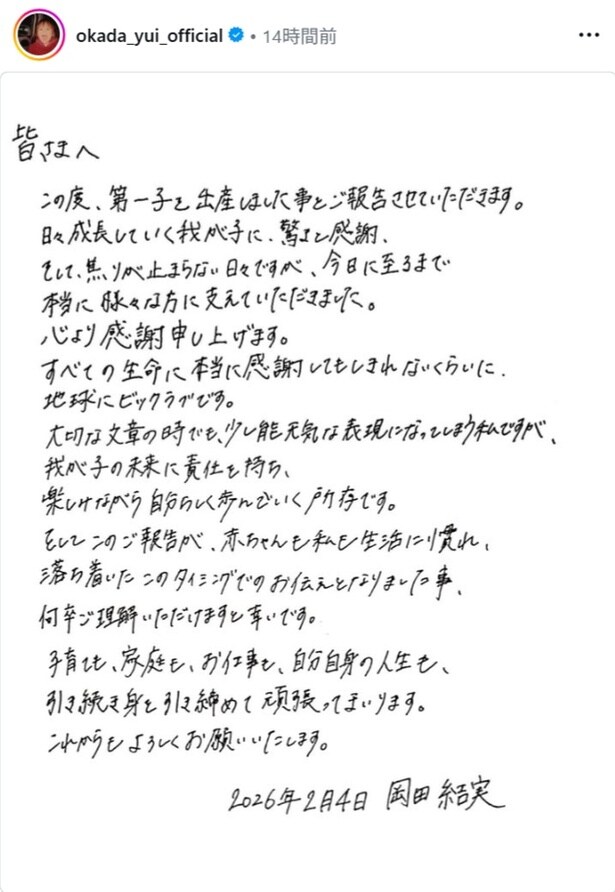 okada_yui_official • 14時間前
皆さまへ
この度、第一子を出産しました事をご報告させていただきます。
日々成長していく我が子に、驚きと感謝、
そして、焦りが止まらない日々ですが、今日に至るまで
本当に様々な方に支えていただきました。
心より感謝申し上げます。
すべての生命に本当に感謝してもしきれないくらいに、
地球にビックラブです。
大切な文章の時でも、少し能天気な表現になってしまう私ですが、
我が子の未来に責任を持ち、
楽しみながら自分らしく歩んでいく所存です。
そしてこのご報告が、赤ちゃんも私も生活に慣れ、
落ち着いたこのタイミングでのお伝えとなりました事、
何卒ご理解いただけますと幸いです。
子育ても、家庭も、お仕事も、自分自身の人生も、
引き続き身を引き締めて頑張ってまいります。
これからもよろしくお願いいたします。
2026年2月4日 岡田結実